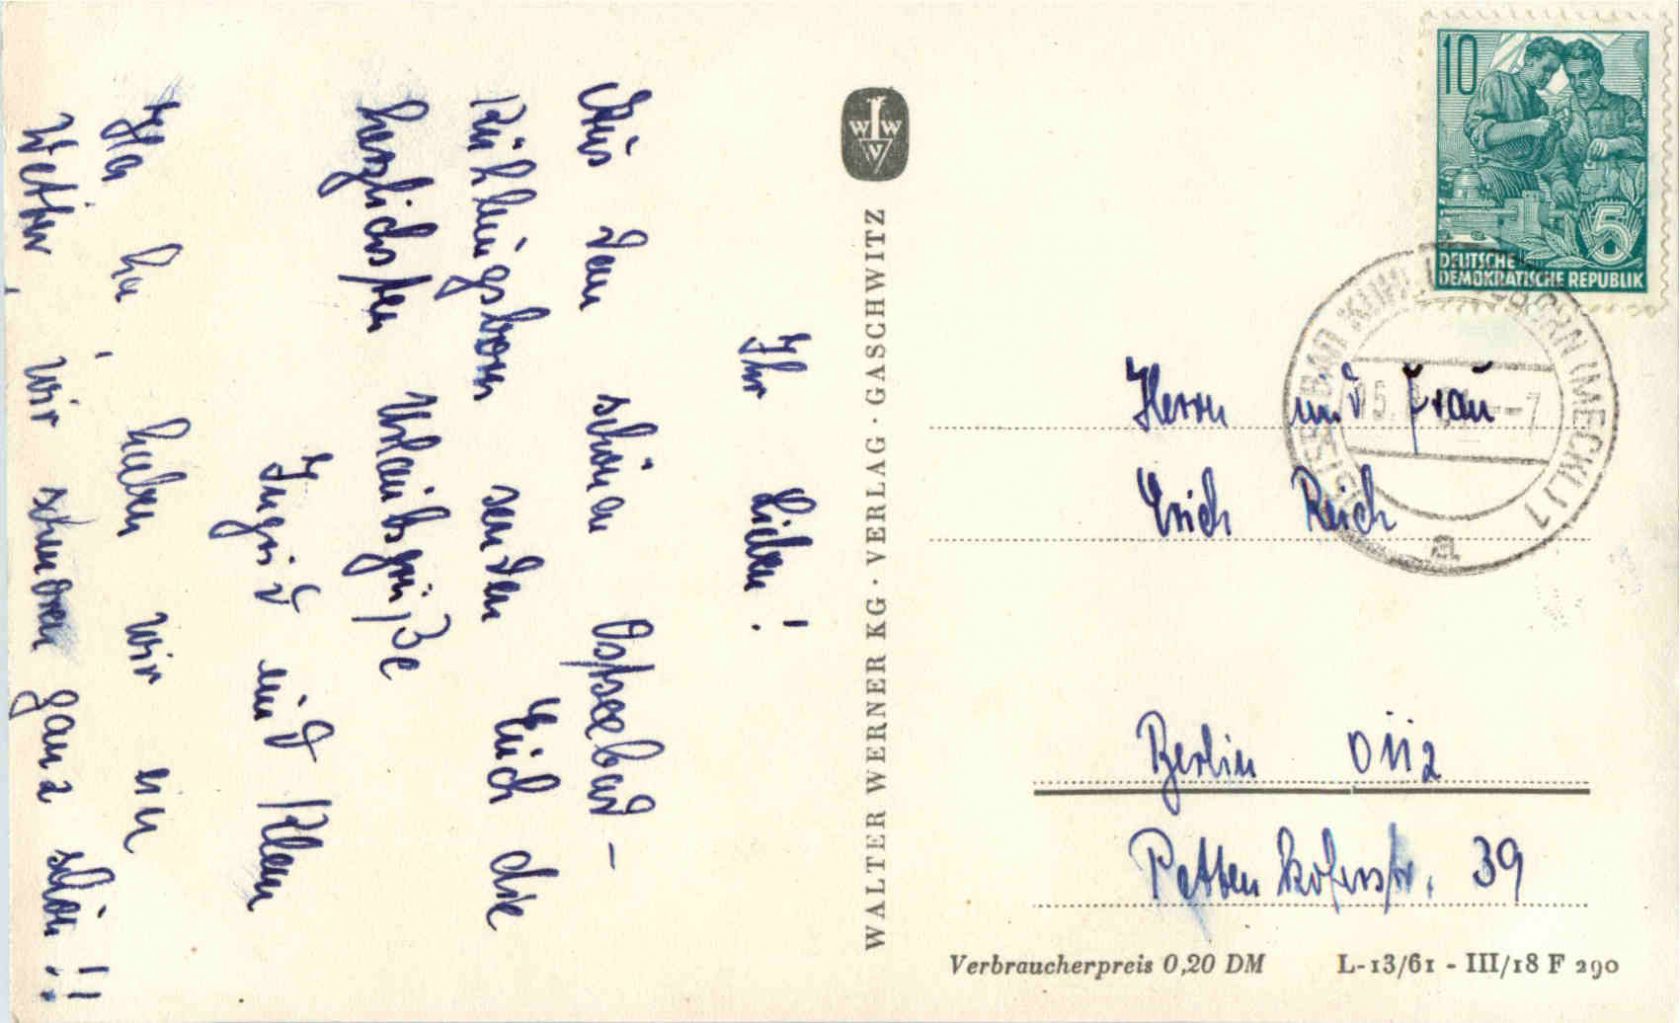 Ihr Lieben!
Aus dem schönen Ostseebad-
Kühlungsborn senden Euch die
herzlichsten Urlaubsgrüße
Ingrid und Klaus
Ha ha, haben wir ein
Wetter, wir schmoren ganz schön!!
WWV
WALTER WERNER KG · VERLAG · GASCHWITZ
10
5
DEUTSCHE
DEMOKRATISCHE REPUBLIK
OSTSEEBAD KÜHLUNGSBORN (MECKL) 1
a
Herrn und Frau
Erich Reich
Berlin O 112
Pettenkoferstr. 39
Verbraucherpreis 0,20 DM
L-13/61 - III/18 F 290